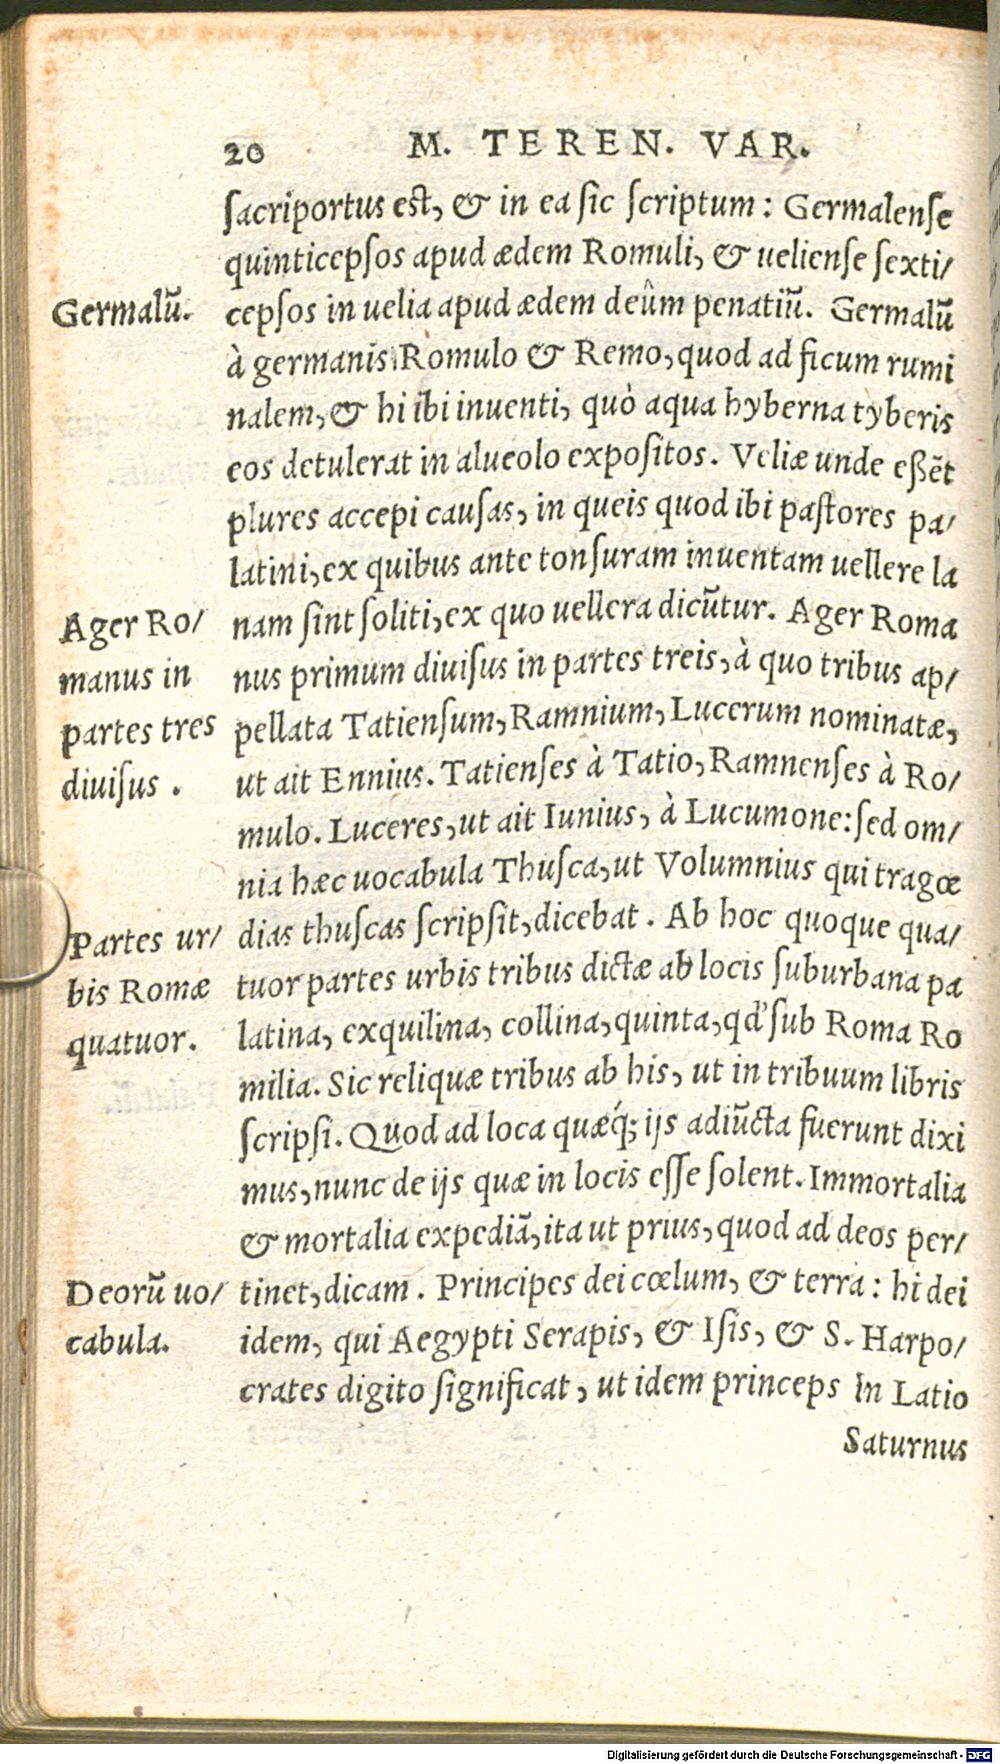 20 M. TEREN. VAR.
sacriportus est, & in ea sic scriptum: Germalense
quinticepsos apud ædem Romuli, & ueliense sexti/
Germalū.
cepsos in uelia apud ædem deûm penatiū. Germalū
à germanis Romulo & Remo, quod ad ficum rumi
nalem, & hi ibi inuenti, quò aqua hyberna tyberis
eos detulerat in alueolo expositos. Veliæ unde eßēt
plures accepi causas, in queis quod ibi pastores pa/
latini, ex quibus ante tonsuram inuentam uellere la
Ager Ro/
manus in
partes tres
diuisus.
nam sint soliti, ex quo uellera dicūtur. Ager Roma
nus primum diuisus in partes treis, à quo tribus ap/
pellata Tatiensum, Ramnium, Lucerum nominatæ,
ut ait Ennius. Tatienses à Tatio, Ramnenses à Ro/
mulo. Luceres, ut ait Iunius, à Lucumone: sed om/
nia hæc uocabula Thusca, ut Volumnius qui tragœ
Partes ur/
bis Romæ
quatuor.
dias thuscas scripsit, dicebat. Ab hoc quoque qua/
tuor partes urbis tribus dictæ ab locis suburbana pa
latina, exquilina, collina, quinta, qd' sub Roma Ro
milia. Sic reliquæ tribus ab his, ut in tribuum libris
scripsi. Quod ad loca quæq́; ijs adiūcta fuerunt dixi
mus, nunc de ijs quæ in locis esse solent. Immortalia
& mortalia expediā, ita ut prius, quod ad deos per/
Deorū uo/
cabula.
tinet, dicam. Principes dei cœlum, & terra: hi dei
idem, qui Aegypti Serapis, & Isis, & S. Harpo/
crates digito significat, ut idem princeps in Latio
Saturnus
Digitalisierung gefördert durch die Deutsche Forschungsgemeinschaft - DFG